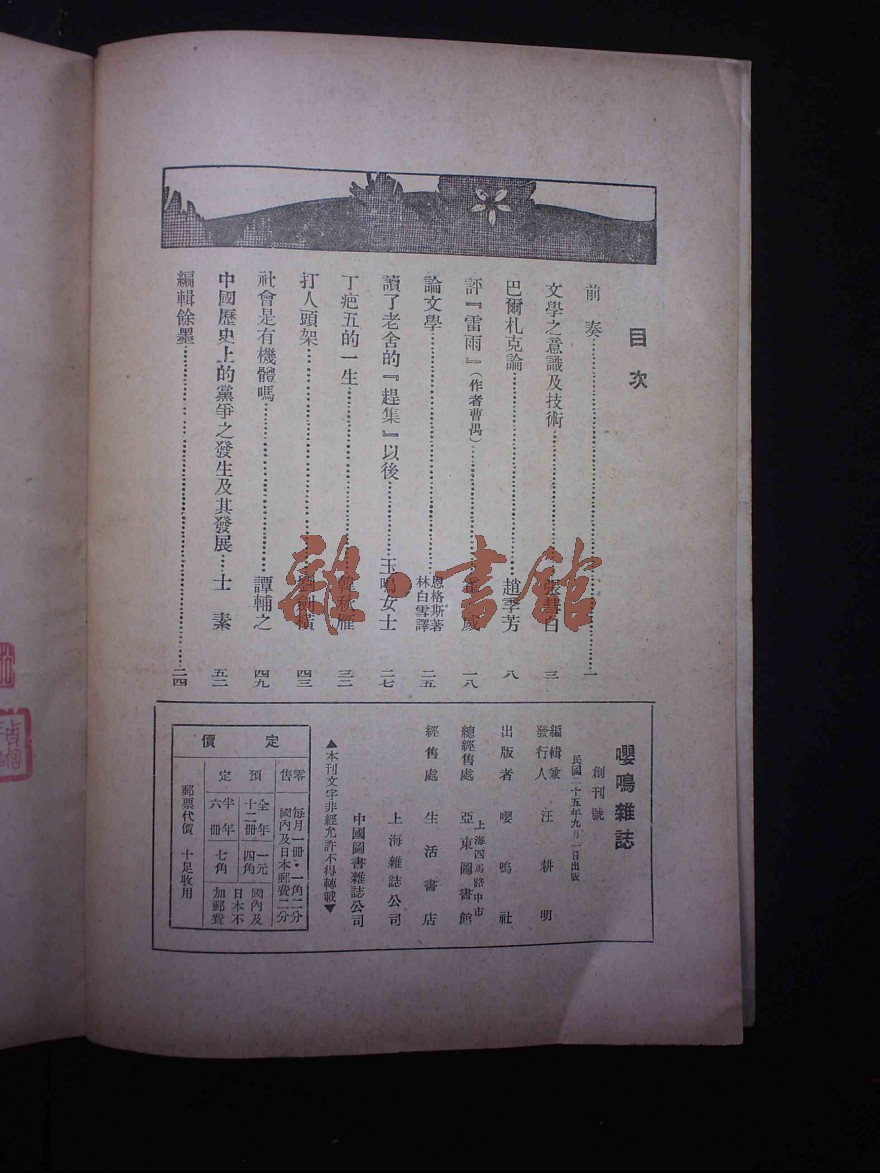 目次
前奏……一
文學之意識及技術……張慧白 三
巴爾札克論……趙季芳 八
評『雷雨』(作者曹禺)……威 一八
論文學……恩格斯著 林白雪譯 二五
讀了老舍的『趕集』以後……玉鳴女士 二七
丁疤五的一生……韓秋雁 三二
打人頭架……劉劍橫 四三
社會是有機體嗎……譚輔之 四九
中國歷史上的黨爭之發生及其發展……士素 五二
編輯餘墨……二四
嚶鳴雜誌
創刊號
民國二十五年九月一日出版
編輯兼發行人 汪耕明
出版者 嚶鳴社
總經售處 上海四馬路中市 亞東圖書館
經售處 生活書店
上海雜誌公司
中國圖書雜誌公司
▲本刊文字非經允許不得轉載▼
定價
零售 每月一冊·一角二分 國內及日本郵費二分
預定 全年十二冊 一元四角 國內及日本不加郵費
半年六冊 七角
郵票代價 十足收用
雜·書館